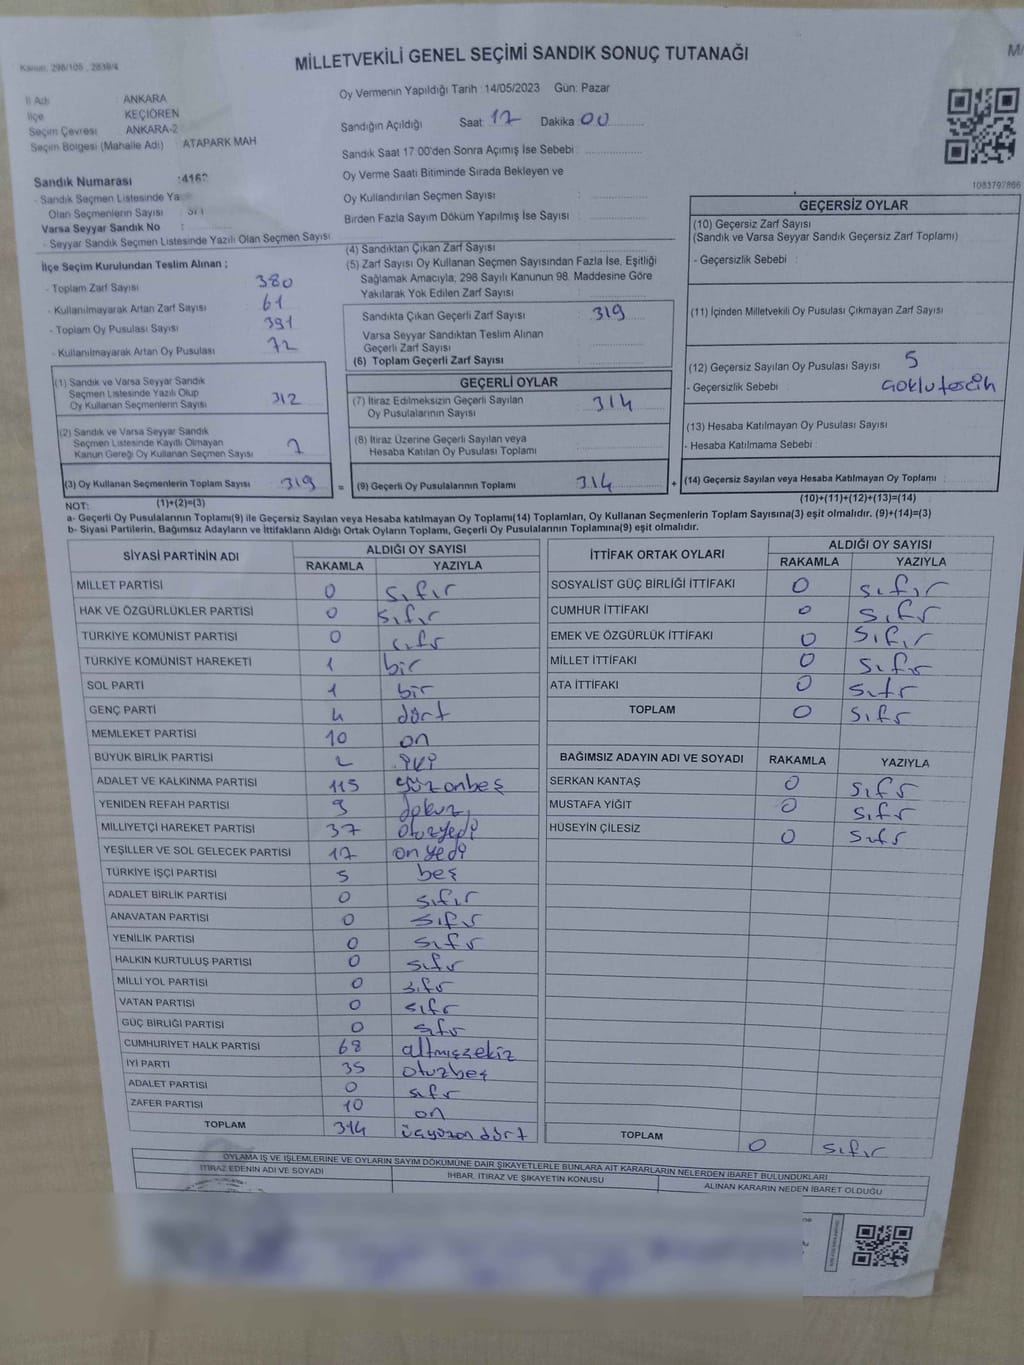 Kanun: 298/105 , 2839/4
MİLLETVEKİLİ GENEL SEÇİMİ SANDIK SONUÇ TUTANAĞI
İl Adı : ANKARA
İlçe : KEÇİÖREN
Seçim Çevresi : ANKARA-2
Seçim Bölgesi (Mahalle Adı) : ATAPARK MAH
Sandık Numarası
- Sandık Seçmen Listesinde
Olan Seçmenlerin Sayısı :
Varsa Seyyar Sandık No :
- Seyyar Sandık Listesinde Yazılı Olan Seçmen Sayısı
Oy Vermenin Yapıldığı Tarih :14/05/2023 Gün: Pazar
Sandığın Açıldığı Saat 17 Dakika 00
Sandık Saat 17:00'den Sonra Açımış İse Sebebi :
Oy Verme Saati Bitiminde Sırada Bekleyen ve
Oy Kullandırılan Seçmen Sayısı :
Birden Fazla Sayım Döküm Yapılmış İse Sayısı :
1083797866
İlçe Seçim Kurulundan Teslim Alınan ;
- Toplam Zarf Sayısı 380
- Kullanılmayarak Artan Zarf Sayısı 61
- Toplam Oy Pusulası Sayısı 391
- Kullanılmayarak Artan Oy Pusulası 72
(1) Sandık ve Varsa Seyyar Sandık
Seçmen Listesinde Yazılı Olup
Oy Kullanan Seçmenlerin Sayısı 312
(2) Sandık ve Varsa Seyyar Sandık
Seçmen Listesinde Kayıtlı Olmayan
Kanun Gereği Oy Kullanan Seçmen Sayısı 7
(3) Oy Kullanan Seçmenlerin Toplam Sayısı 319
(4) Sandıktan Çıkan Zarf Sayısı :
(5) Zarf Sayısı Oy Kullanan Seçmen Sayısından Fazla İse, Eşitliği
Sağlamak Amacıyla, 298 Sayılı Kanunun 98. Maddesine Göre
Yakılarak Yok Edilen Zarf Sayısı :
Sandıkta Çıkan Geçerli Zarf Sayısı : 319
Varsa Seyyar Sandıktan Teslim Alınan
Geçerli Zarf Sayısı :
(6) Toplam Geçerli Zarf Sayısı :
GEÇERLİ OYLAR
(7) İtiraz Edilmeksizin Geçerli Sayılan
Oy Pusulalarının Sayısı : 314
(8) İtiraz Üzerine Geçerli Sayılan veya
Hesaba Katılan Oy Pusulası Toplamı :
= (9) Geçerli Oy Pusulalarının Toplamı : 314
GEÇERSİZ OYLAR
(10) Geçersiz Zarf Sayısı :
(Sandık ve Varsa Seyyar Sandık Geçersiz Zarf Toplamı)
- Geçersizlik Sebebi :
(11) İçinden Milletvekili Oy Pusulası Çıkmayan Zarf Sayısı
(12) Geçersiz Sayılan Oy Pusulası Sayısı : 5
- Geçersizlik Sebebi :
(13) Hesaba Katılmayan Oy Pusulası Sayısı :
- Hesaba Katılmama Sebebi :
+ (14) Geçersiz Sayılan veya Hesaba Katılmayan Oy Toplamı :
NOT: (1)+(2)=(3) (10)+(11)+(12)+(13)=(14)
a- Geçerli Oy Pusulalarının Toplamı(9) ile Geçersiz Sayılan veya Hesaba katılmayan Oy Toplamı(14) Toplamları, Oy Kullanan Seçmenlerin Toplam Sayısına(3) eşit olmalıdır. (9)+(14)=(3)
b- Siyasi Partilerin, Bağımsız Adayların ve İttifakların Aldığı Ortak Oyların Toplamı, Geçerli Oy Pusulalarının Toplamına(9) eşit olmalıdır.
SİYASİ PARTİNİN ADI ALDIĞI OY SAYISI
RAKAMLA YAZIYLA
MİLLET PARTİSİ 0 sıfır
HAK VE ÖZGÜRLÜKLER PARTİSİ 0 sıfır
TÜRKİYE KOMÜNİST PARTİSİ 0 sıfır
TÜRKİYE KOMÜNİST HAREKETİ 1 bir
SOL PARTİ 1 bir
GENÇ PARTİ 4 dört
MEMLEKET PARTİSİ 10 on
BÜYÜK BİRLİK PARTİSİ 2 iki
ADALET VE KALKINMA PARTİSİ 115 yüzonbeş
YENİDEN REFAH PARTİSİ 9 dokuz
MİLLİYETÇİ HAREKET PARTİSİ 37 otuzyedi
YEŞİLLER VE SOL GELECEK PARTİSİ 17 onyedi
TÜRKİYE İŞÇİ PARTİSİ 5 beş
ADALET BİRLİK PARTİSİ 0 sıfır
ANAVATAN PARTİSİ 0 sıfır
YENİLİK PARTİSİ 0 sıfır
HALKIN KURTULUŞ PARTİSİ 0 sıfır
MİLLİ YOL PARTİSİ 0 sıfır
VATAN PARTİSİ 0 sıfır
GÜÇ BİRLİĞİ PARTİSİ 0 sıfır
CUMHURİYET HALK PARTİSİ 68 altmışsekiz
İYİ PARTİ 35 otuzbeş
ADALET PARTİSİ 0 sıfır
ZAFER PARTİSİ 10 on
TOPLAM 314 üçyüzon dört
İTTİFAK ORTAK OYLARI ALDIĞI OY SAYISI
RAKAMLA YAZIYLA
SOSYALİST GÜÇ BİRLİĞİ İTTİFAKI 0 sıfır
CUMHUR İTTİFAKI 0 sıfır
EMEK VE ÖZGÜRLÜK İTTİFAKI 0 sıfır
MİLLET İTTİFAKI 0 sıfır
ATA İTTİFAKI 0 sıfır
TOPLAM 0 sıfır
BAĞIMSIZ ADAYIN ADI VE SOYADI RAKAMLA YAZIYLA
SERKAN KANTAŞ 0 sıfır
MUSTAFA YİĞİT 0 sıfır
HÜSEYİN ÇİLESİZ 0 sıfır
TOPLAM 0 sıfır
OYLAMA İŞ VE İŞLEMLERİNE VE OYLARIN SAYIM DÖKÜMÜNE DAİR ŞİKAYETLERLE BUNLARA AİT KARARLARIN NELERDEN İBARET BULUNDUKLARI
İTİRAZ EDENİN ADI VE SOYADI İHBAR, İTİRAZ VE ŞİKAYETİN KONUSU ALINAN KARARIN NEDEN İBARET OLDUĞU